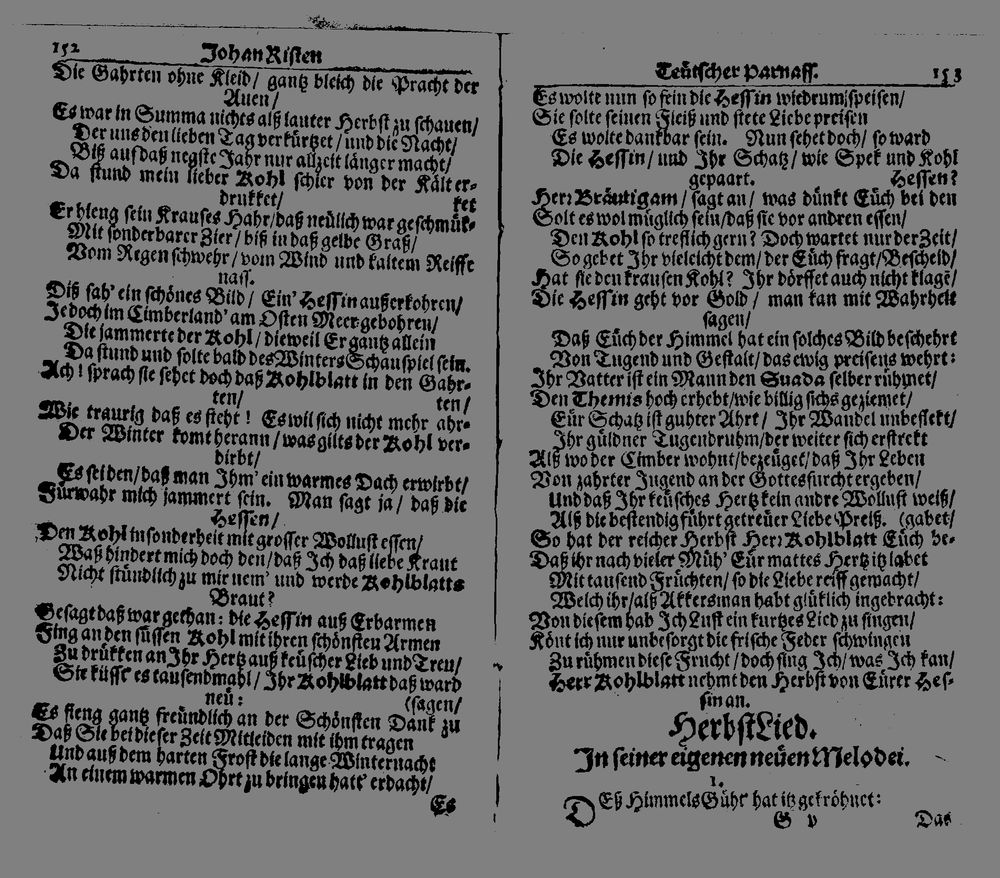 152
Johan Risten
Die Gahrten ohne Kleid/ gantz bleich die Pracht der
Auen/
Es war in Summa nichts alß lauter Herbst zu schauen/
Der uns den lieben Tag verkürtzet/ und die Nacht/
Biß auf daß negste Jahr nur allzeit länger macht/
Da stund mein lieber Kohl schier von der Kält er-
drukket/ ket
Er hieng sein Krauses Hahr/ daß neülich war geschmük-
Mit sonderbarer Zier/ biß in daß gelbe Graß/
Vom Regen schwehr/ vom Wind und kaltem Reiffe
nass.
Diß sah' ein schönes Bild/ Ein' Hessin außerkohren/
Jedoch im Cimberland' am Osten Meer gebohren/
Die jammerte der Kohl/ dieweil Er gantz allein
Da stund und solte bald des Winters Schauspiel sein.
Ach! sprach sie sehet doch daß Kohlblatt in den Gahr-
ten/ ten/
Wie traurig daß es steht! Es wil sich nicht mehr ahr-
Der Winter komt herann/ was gilts der Kohl ver-
dirbt/
Es sei den/ daß man Ihm' ein warmes Dach erwirbt/
Fürwahr mich jammert sein. Man sagt ja/ daß die
Hessen/
Den Kohl insonderheit mit grosser Wollust essen/
Waß hindert mich doch den/ daß Ich daß liebe Kraut
Nicht stündlich zu mir nem' und werde Kohlblatts
Braut?
Gesagt daß war gethan: die Hessin auß Erbarmen
Fing an den süssen Kohl mit ihren schönsten Armen
Zu drükken an Ihr Hertz auß keüscher Lieb und Treu/
Sie küsst' es tausendmahl/ Ihr Kohlblatt daß ward
neü: (sagen/
Es fieng gantz freündlich an der Schönsten Dank zu
Daß Sie bei dieser Zeit Mitleiden mit ihm tragen
Und auß dem harten Frost die lange Winternacht
An einem warmen Ohrt zu bringen hatt' erdacht/
Es
Teütscher Parnass.
153
Es wolte nun so fein die Hessin wiedrum speisen/
Sie solte seinen Fleiß und stete Liebe preisen
Es wolte dankbar sein. Nun sehet doch/ so ward
Die Hessin/ und Ihr Schatz/ wie Spek und Kohl
gepaart. Hessen?
Herr Bräutigam/ sagt an/ was dünkt Eüch bei den
Solt es wol müglich sein/ daß sie vor andren essen/
Den Kohl so treflich gern? Doch wartet nur der Zeit/
So gebet Ihr vieleicht dem/ der Eüch fragt/ Bescheid/
Hat sie den krausen Kohl? Ihr dörffet auch nicht klagē/
Die Hessin geht vor Gold/ man kan mit Wahrheit
sagen/
Daß Eüch der Himmel hat ein solches Bild beschehrt
Von Tugend und Gestalt/ das ewig preisens wehrt:
Ihr Vatter ist ein Mann den Suada selber rühmet/
Den Themis hoch erhebt/ wie billig sichs geziemet/
Eür Schatz ist guhter Ahrt/ Ihr Wandel unbeflekt/
Ihr güldner Tugendruhm/ der weiter sich erstrekt
Alß wo der Cimber wohnt/ bezeüget/ daß Ihr Leben
Von zahrter Jugend an der Gottesfurcht ergeben/
Und daß Ihr keüsches Hertz kein andre Wollust weiß/
Alß die bestendig führt getreüer Liebe Preiß. (gabet/
So hat der reicher Herbst Herr Kohlblatt Eüch be-
Daß ihr nach vieler Müh' Eür mattes Hertz itz labet
Mit tausend Früchten/ so die Liebe reiff gemacht/
Welch ihr/ alß Akkersman habt glüklich ingebracht:
Von diesem hab Ich Lust ein kurtzes Lied zu singen/
Könt ich nur unbesorgt die frische Feder schwingen
Zu rühmen diese Frucht/ doch sing Ich/ was Ich kan/
Herr Kohlblatt nehmt den Herbst von Eürer Hes-
sin an.
HerbstLied.
In seiner eigenen neüen Melodei.
1.
Deß Himmels Güht' hat itz gekröhnet:
G v
Das